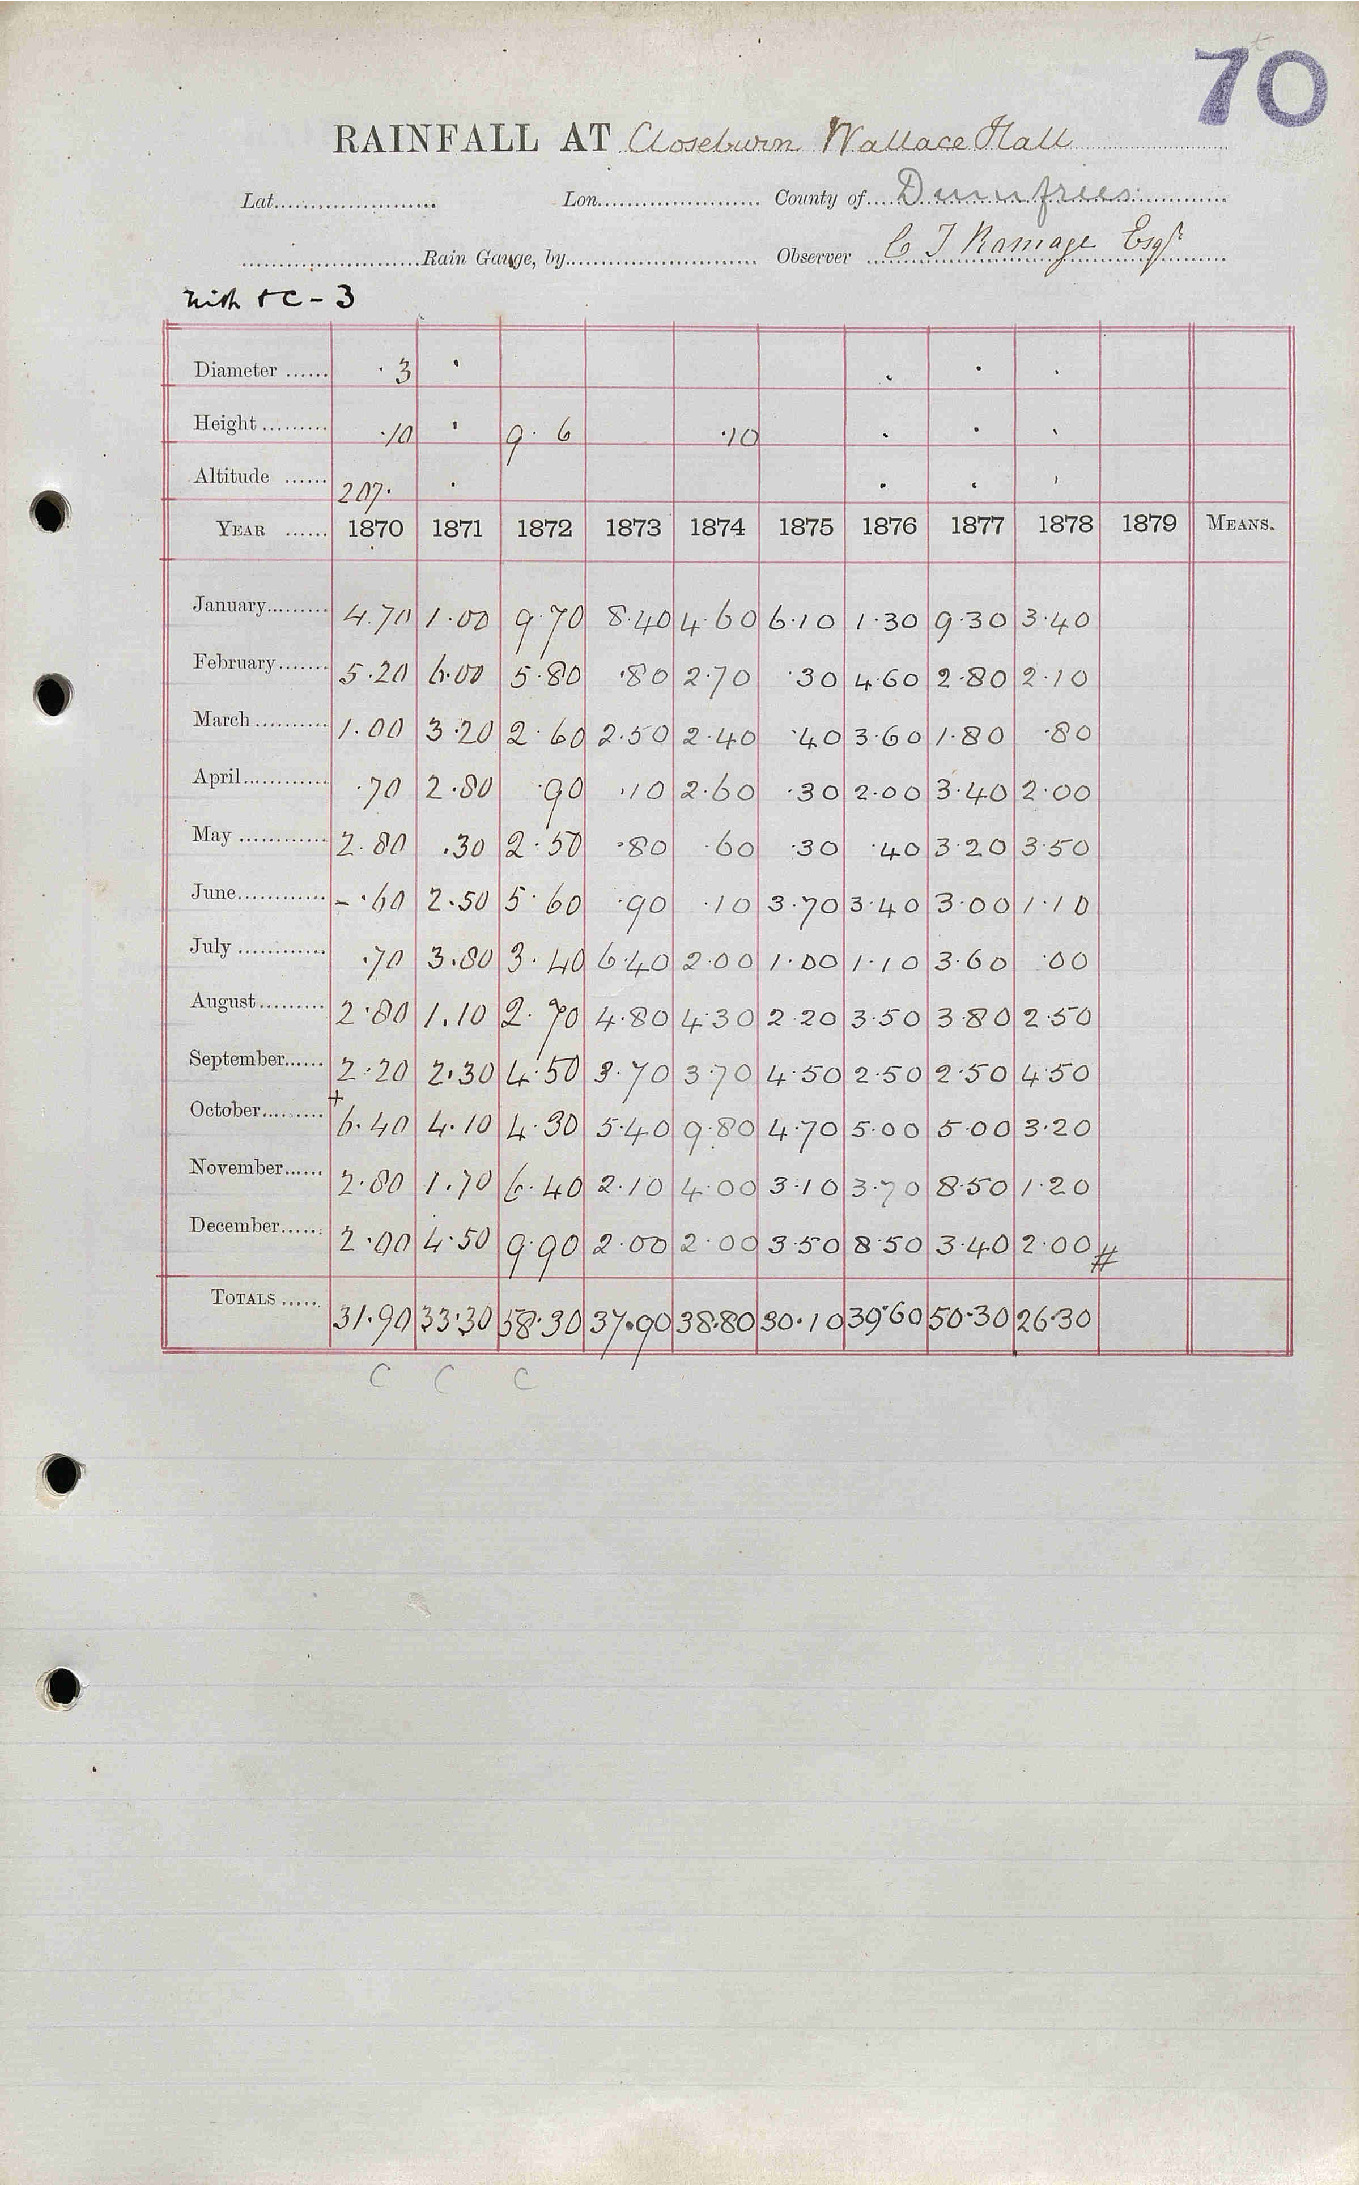 70
RAINFALL AT Closeburn Wallace Hall
Lat. Lon. County of Dumfries
Rain Gauge, by Observer C T Ramage Esqr
Diameter ...... · 3 ·
Height ......... ·10 · 9 · 6 ·10
Altitude ...... 207·
YEAR ...... 1870 1871 1872 1873 1874 1875 1876 1877 1878 1879 MEANS.
January......... 4.70 1.00 9.70 8.40 4.60 6.10 1.30 9.30 3.40
February....... 5.20 6.00 5.80 .80 2.70 .30 4.60 2.80 2.10
March .......... 1.00 3.20 2.60 2.50 2.40 .40 3.60 1.80 .80
April............ .70 2.80 .90 .10 2.60 .30 2.00 3.40 2.00
May ............ 2.80 .30 2.50 .80 .60 .30 .40 3.20 3.50
June............ - .60 2.50 5.60 .90 .10 3.70 3.40 3.00 1.10
July ............ .70 3.80 3.40 6.40 2.00 1.00 1.10 3.60 .00
August......... 2.80 1.10 2.70 4.80 4.30 2.20 3.50 3.80 2.50
September...... 2.20 2.30 4.50 3.70 3.70 4.50 2.50 2.50 4.50
October......... + 6.40 4.10 4.30 5.40 9.80 4.70 5.00 5.00 3.20
November...... 2.80 1.70 6.40 2.10 4.00 3.10 3.70 8.50 1.20
December...... 2.00 4.50 9.90 2.00 2.00 3.50 8.50 3.40 2.00 #
TOTALS ..... 31.90 33.30 58.30 37.90 38.80 30.10 39.60 50.30 26.30
C C C